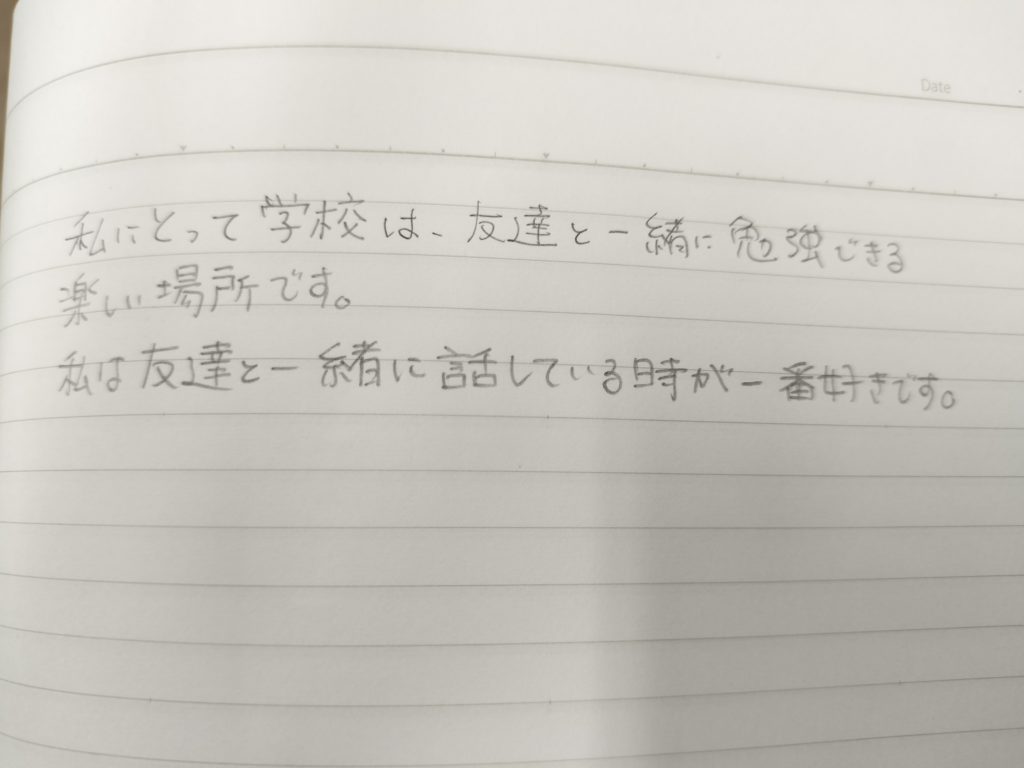 Date
私にとって学校は、友達と一緒に勉強できる
楽しい場所です。
私は友達と一緒に話している時が一番好きです。